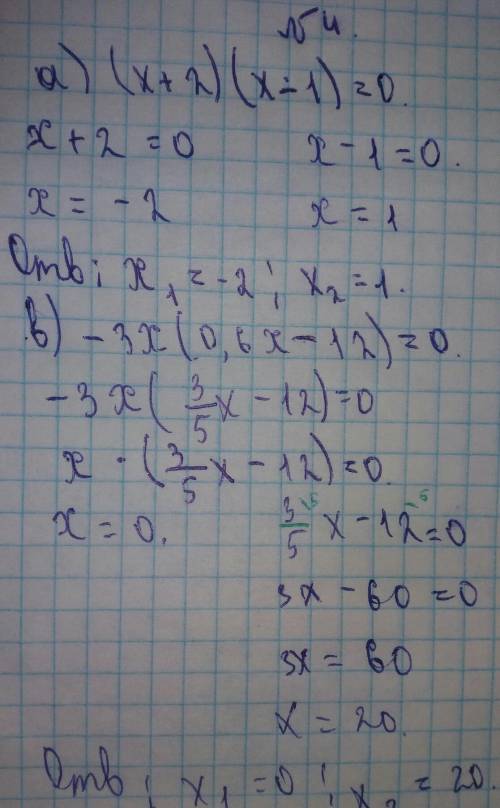 № 4.
а) (x+2)(x-1)=0.
x+2=0 x-1=0.
x=-2 x=1
Отв: x₁=-2; x₂=1.
в) -3x(0,6x-12)=0.
-3x(3/5x-12)=0
x·(3/5x-12)=0.
x=0. 3/5\5 x-12\5=0
3x-60=0
3x=60
x=20.
Отв: x₁=0; x₂=20.